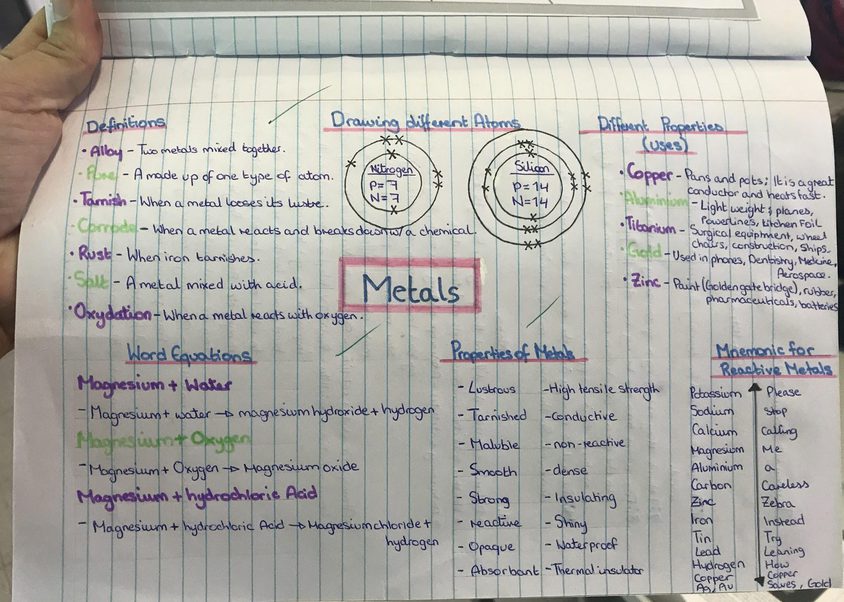 Definitions
• Alloy - Two metals mixed together.
• Pure - A made up of one type of atom.
• Tarnish - When a metal looses its lustre.
• Corrode - When a metal reacts and breaks down w/ a chemical.
• Rust - When iron tarnishes.
• Salt - A metal mixed with acid.
• Oxydation - When a metal reacts with oxygen.
Drawing different Atoms
Nitrogen
P=7
N=7
Silicon
P=14
N=14
Different Properties
(uses)
• Copper - Pans and pots; It is a great
conductor and heats fast.
• Aluminium - Light weight; planes,
Powerlines, kitchen Foil
• Titanium - Surgical equiptment, wheel
chairs, construction, Ships.
• Gold - Used in phones, Dentistry, Medicine,
Aerospace.
• Zinc - Paint (Golden gate bridge), rubber,
pharmaceuticals, batteries
Metals
Word Equations
Magnesium + Water
- Magnesium + water → magnesium hydroxide + hydrogen
Magnesium + Oxygen
- Magnesium + Oxygen → Magnesium oxide
Magnesium + hydrochloric Acid
- Magnesium + hydrochloric Acid → Magnesium chloride +
hydrogen
Properties of Metals
- Lustrous - High tensile strength
- Tarnished - conductive
- Maluble - non-reactive
- Smooth - dense
- Strong - Insulating
- reactive - Shiny
- Opaque - Waterproof
- Absorbant - Thermal insulator
Mnemonic for
Reactive Metals
Potassium Please
Sodium stop
Calcium Calling
Magnesium Me
Aluminium a
Carbon Careless
Zinc Zebra
Iron Instead
Tin Try
Lead Learning
Hydrogen How
Copper Copper
Ag, Au Saves, Gold